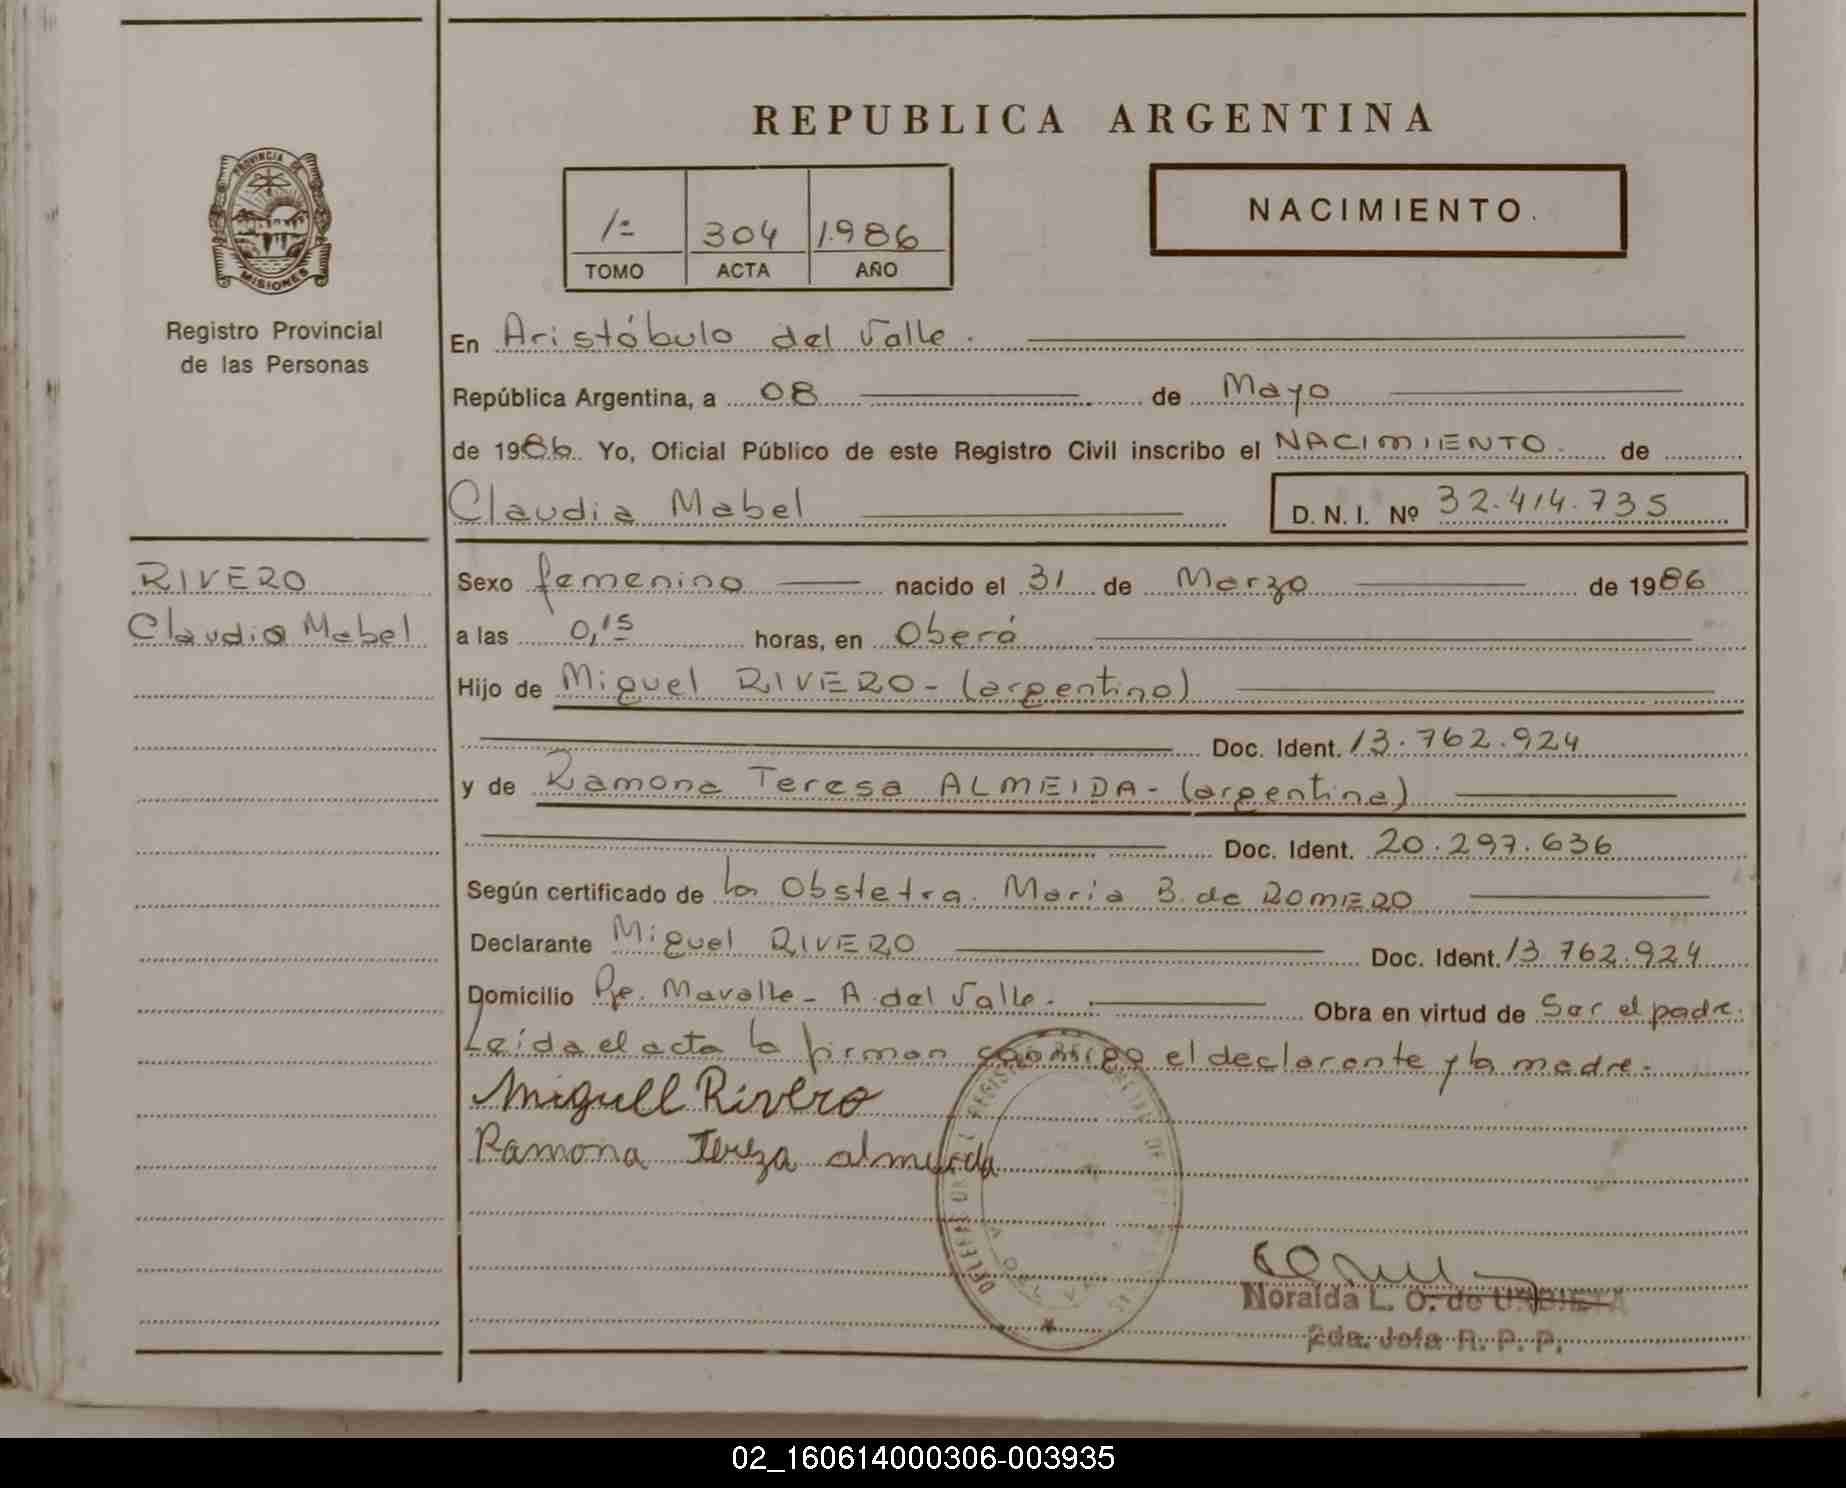 REPUBLICA ARGENTINA
PROVINCIA DE
MISIONES
Registro Provincial
de las Personas
1= 304 1.986
TOMO ACTA AÑO
NACIMIENTO.
En Aristóbulo del Valle.
República Argentina, a 08 de Mayo
de 1986 Yo, Oficial Público de este Registro Civil inscribo el NACIMIENTO de
Claudia Mabel D.N.I. Nº 32.414.735
RIVERO
Claudia Mabel
Sexo femenino nacido el 31 de Marzo de 1986
a las 0,15 horas, en Oberá
Hijo de Miguel RIVERO - (argentino)
Doc. Ident. 13.762.924
y de Ramona Teresa ALMEIDA - (argentina)
Doc. Ident. 20.297.636
Según certificado de la Obstetra. Maria B. de ROMERO
Declarante Miguel RIVERO Doc. Ident. 13.762.924
Domicilio Pje. Mavalle - A. del Valle. Obra en virtud de Ser el padre.
Leída el acta la firman conmigo el declarante y la madre.
Miguell Rivero
Ramona Tereza almeida
Noralda L. O. de
2da. Jefa R. P. P.
02_160614000306-003935